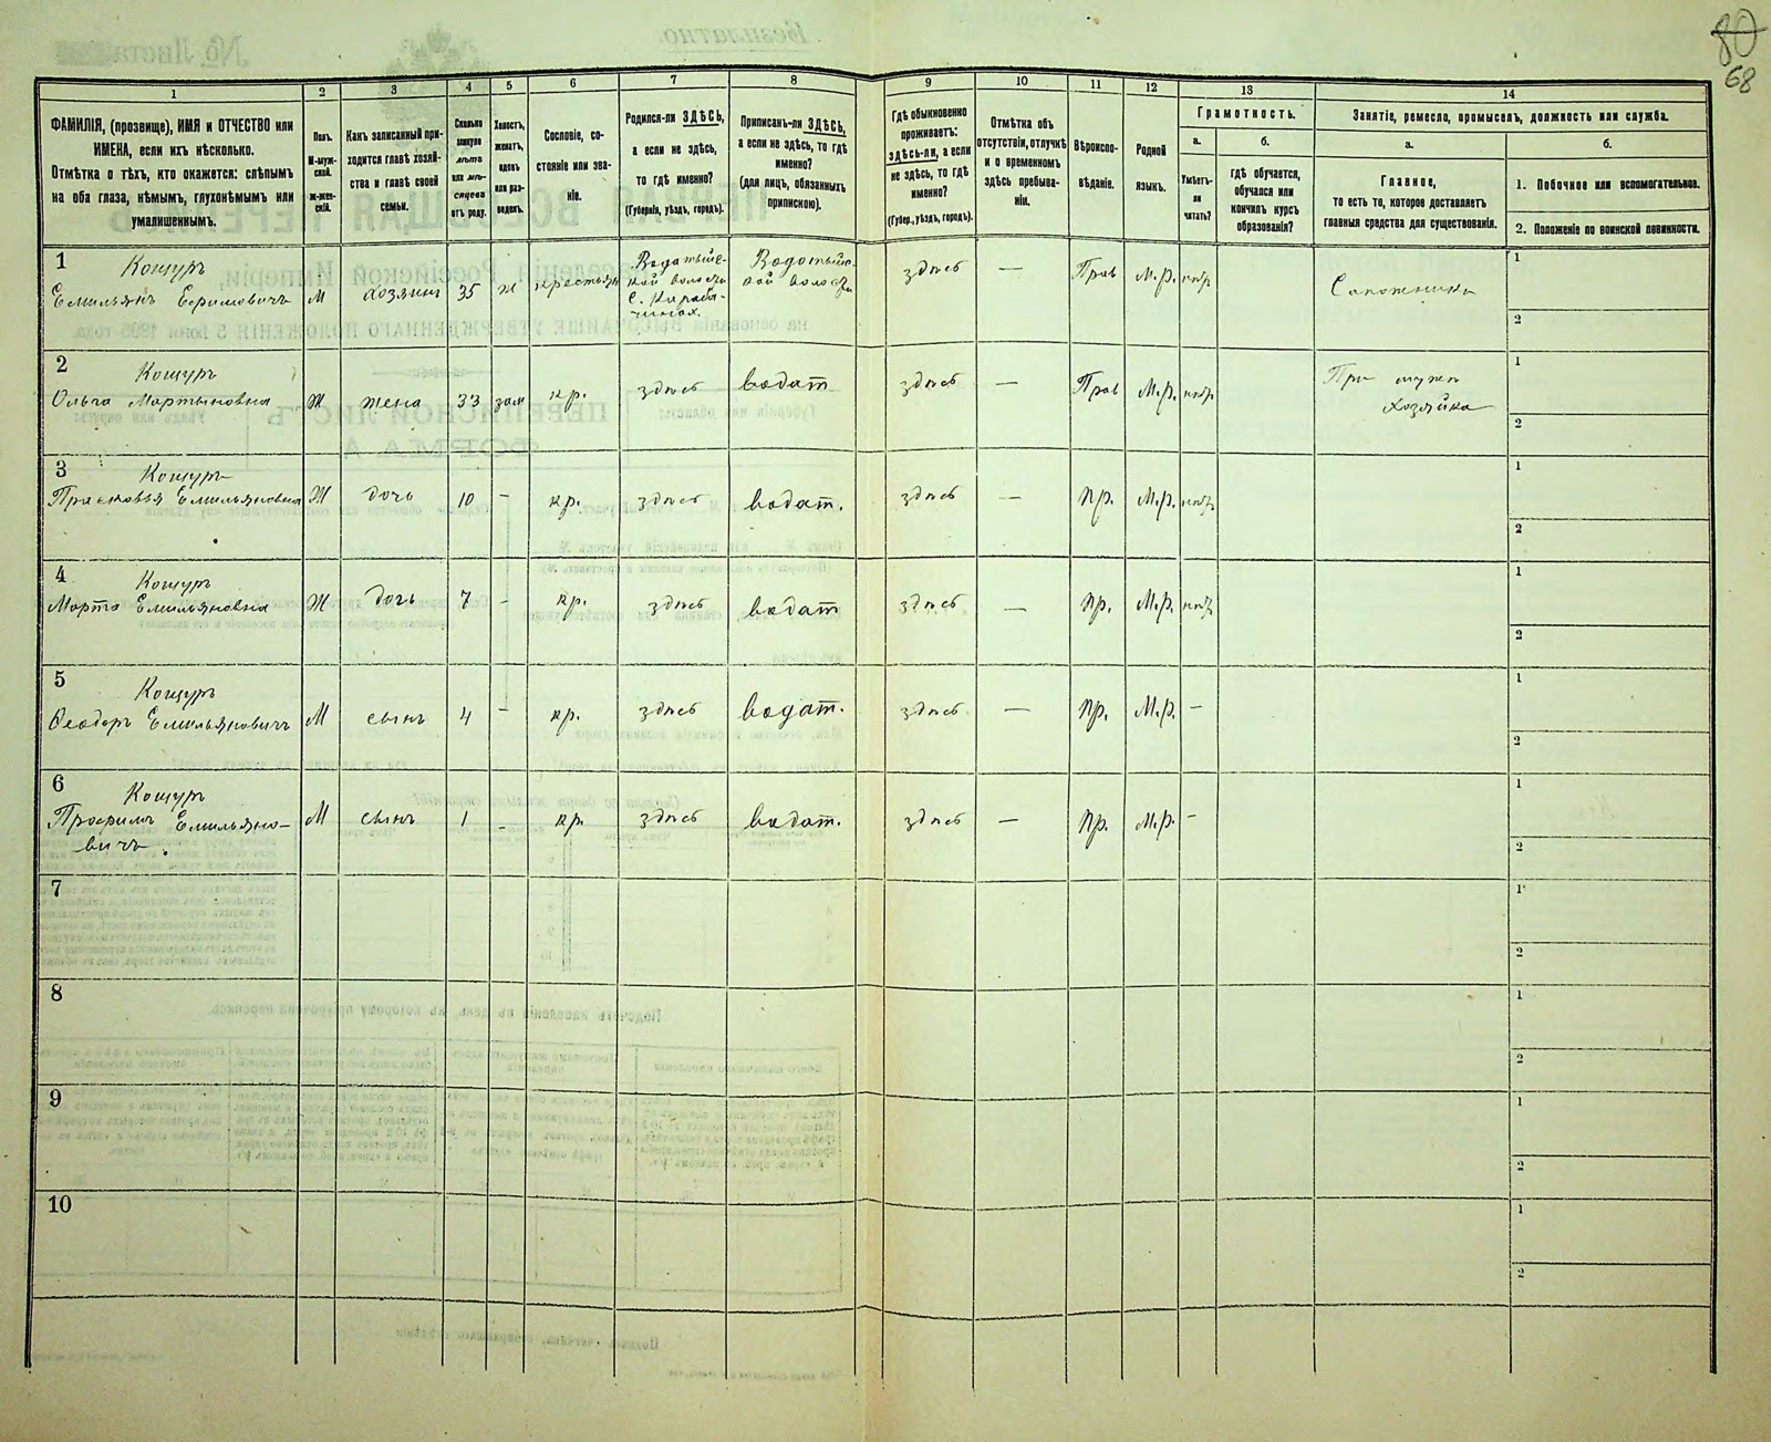 80
68
1
2
3
4
5
6
7
8
9
10
11
12
13
14
ФАМИЛІЯ, (прозвище), ИМЯ и ОТЧЕСТВО или
ИМЕНА, если ихъ нѣсколько.
Отмѣтка о тѣхъ, кто окажется: слѣпымъ
на оба глаза, нѣмымъ, глухонѣмымъ или
умалишеннымъ.
Полъ.
М-муж-
ской.
Ж-жен-
скій.
Какъ записанный при-
ходится главѣ хозяй-
ства и главѣ своей
семьи.
Сколько
минуло
лѣтъ
или мѣ-
сяцевъ
отъ роду.
Холостъ,
женатъ,
вдовъ
или раз-
веденъ.
Сословіе, со-
стояніе или зва-
ніе.
Родился-ли ЗДѢСЬ,
а если не здѣсь,
то гдѣ именно?
(Губернія, уѣздъ, городъ).
Приписанъ-ли ЗДѢСЬ,
а если не здѣсь, то гдѣ
именно?
(для лицъ, обязанныхъ
припискою).
Гдѣ обыкновенно
проживаетъ:
здѣсь-ли, а если
не здѣсь, то гдѣ
именно?
(Губер., уѣздъ, городъ).
Отмѣтка объ
отсутствіи, отлучкѣ
и о временномъ
здѣсь пребыва-
ніи.
Вѣроиспо-
вѣданіе.
Родной
языкъ.
Грамотность.
а.
Умѣетъ-
ли
читать?
б.
гдѣ обучается,
обучался или
кончилъ курсъ
образованія?
Занятіе, ремесло, промыселъ, должность или служба.
а.
Главное,
то есть то, которое доставляетъ
главныя средства для существованія.
б.
1. Побочное или вспомогательное.
2. Положеніе по воинской повинности.
1
Кощуръ
Емильянъ Ефимовичъ
М
хозяинъ
35
ж
крестьян
Водотые-
кой волости
Водотые-
кой волости
здѣсь
—
Прав
М.р.
нѣт
Сапожникъ
1
2
2
Кощуръ
Ольга Мартыновна
Ж
жена
33
зам
кр.
здѣсь
водат
здѣсь
—
Прав
М.р.
нѣт
При мужѣ
хозяйка
1
2
3
Кощуръ
Прасковья Емильяновна
Ж
дочь
10
-
кр.
здѣсь
водат.
здѣсь
—
пр.
М.р.
нѣт
1
2
4
Кощуръ
Марта Емильяновна
Ж
дочь
7
-
кр.
здѣсь
водат
здѣсь
—
пр.
М.р.
нѣт
1
2
5
Кощуръ
Ѳеодоръ Емильяновичъ
М
сынъ
4
-
кр.
здѣсь
водат.
здѣсь
—
пр.
М.р.
-
1
2
6
Кощуръ
Трофимъ Емильяно-
вичъ.
М
сынъ
1
-
кр.
здѣсь
водат.
здѣсь
—
пр.
М.р.
-
1
2
7
1
2
8
1
2
9
1
2
10
1
2